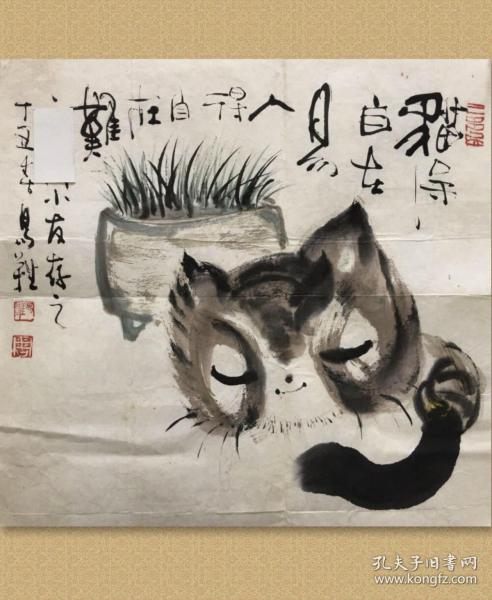 貓得
自在
易
人
得
自
在
難
小友存之
丁丑春
孔夫子旧书网
www.kongfz.com